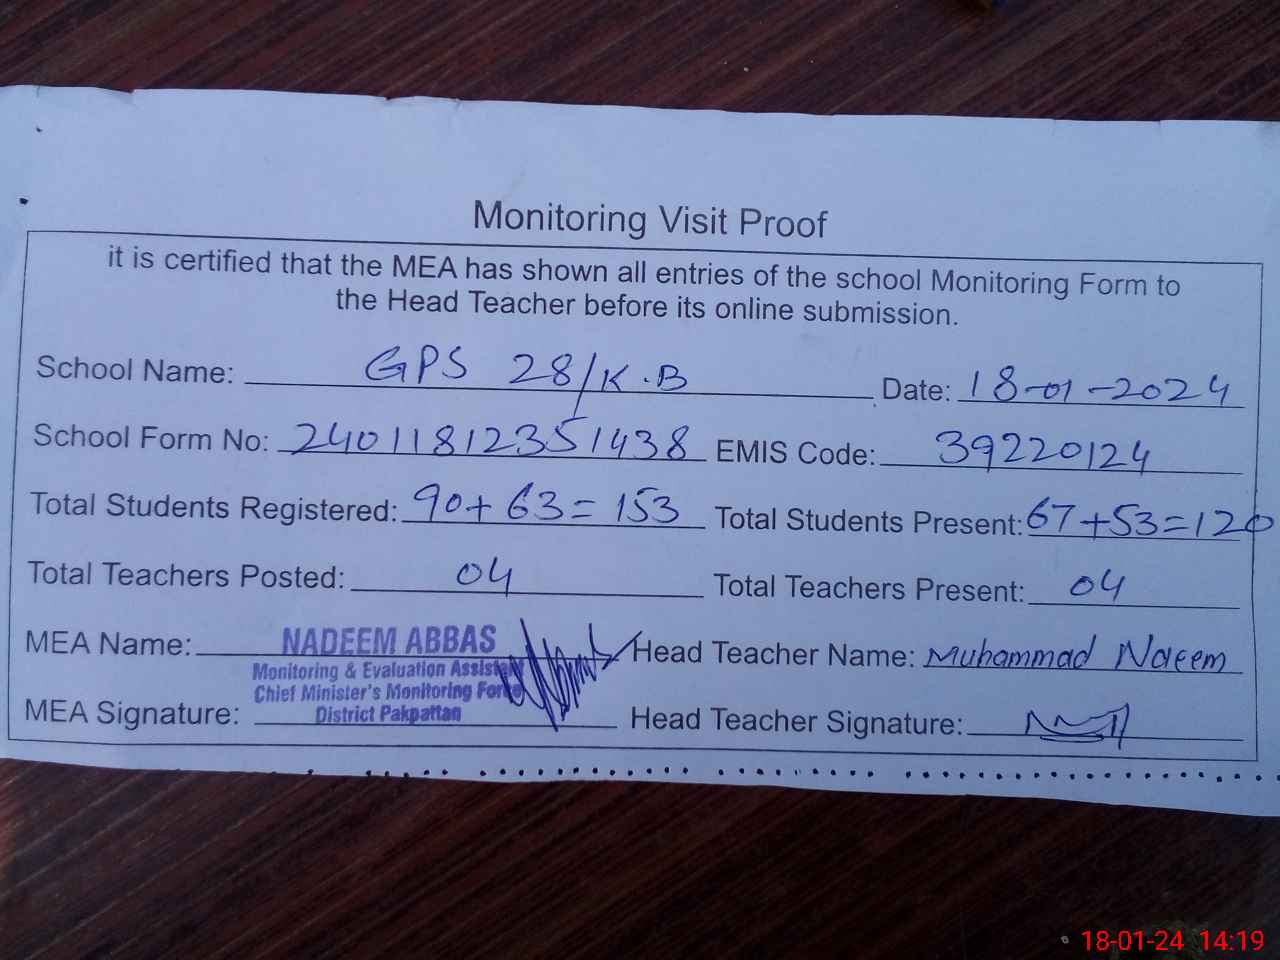 Monitoring Visit Proof
it is certified that the MEA has shown all entries of the school Monitoring Form to
the Head Teacher before its online submission.
School Name: GPS 28/K.B Date: 18-01-2024
School Form No: 24011812351438 EMIS Code: 39220124
Total Students Registered: 90+63=153 Total Students Present: 67+53=120
Total Teachers Posted: 04 Total Teachers Present: 04
MEA Name: NADEEM ABBAS Head Teacher Name: Muhammad Naeem
Monitoring & Evaluation Assistent
Chief Minister's Monitoring Force
District Pakpattan
MEA Signature: Head Teacher Signature:
18-01-24 14:19